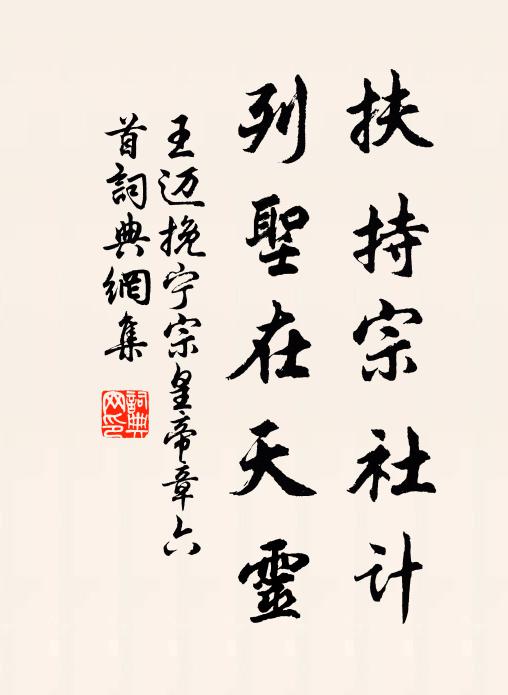 扶持宗社计
列聖在天靈
王迈挽宁宗皇帝章六
首詞典網集
詞典
网印